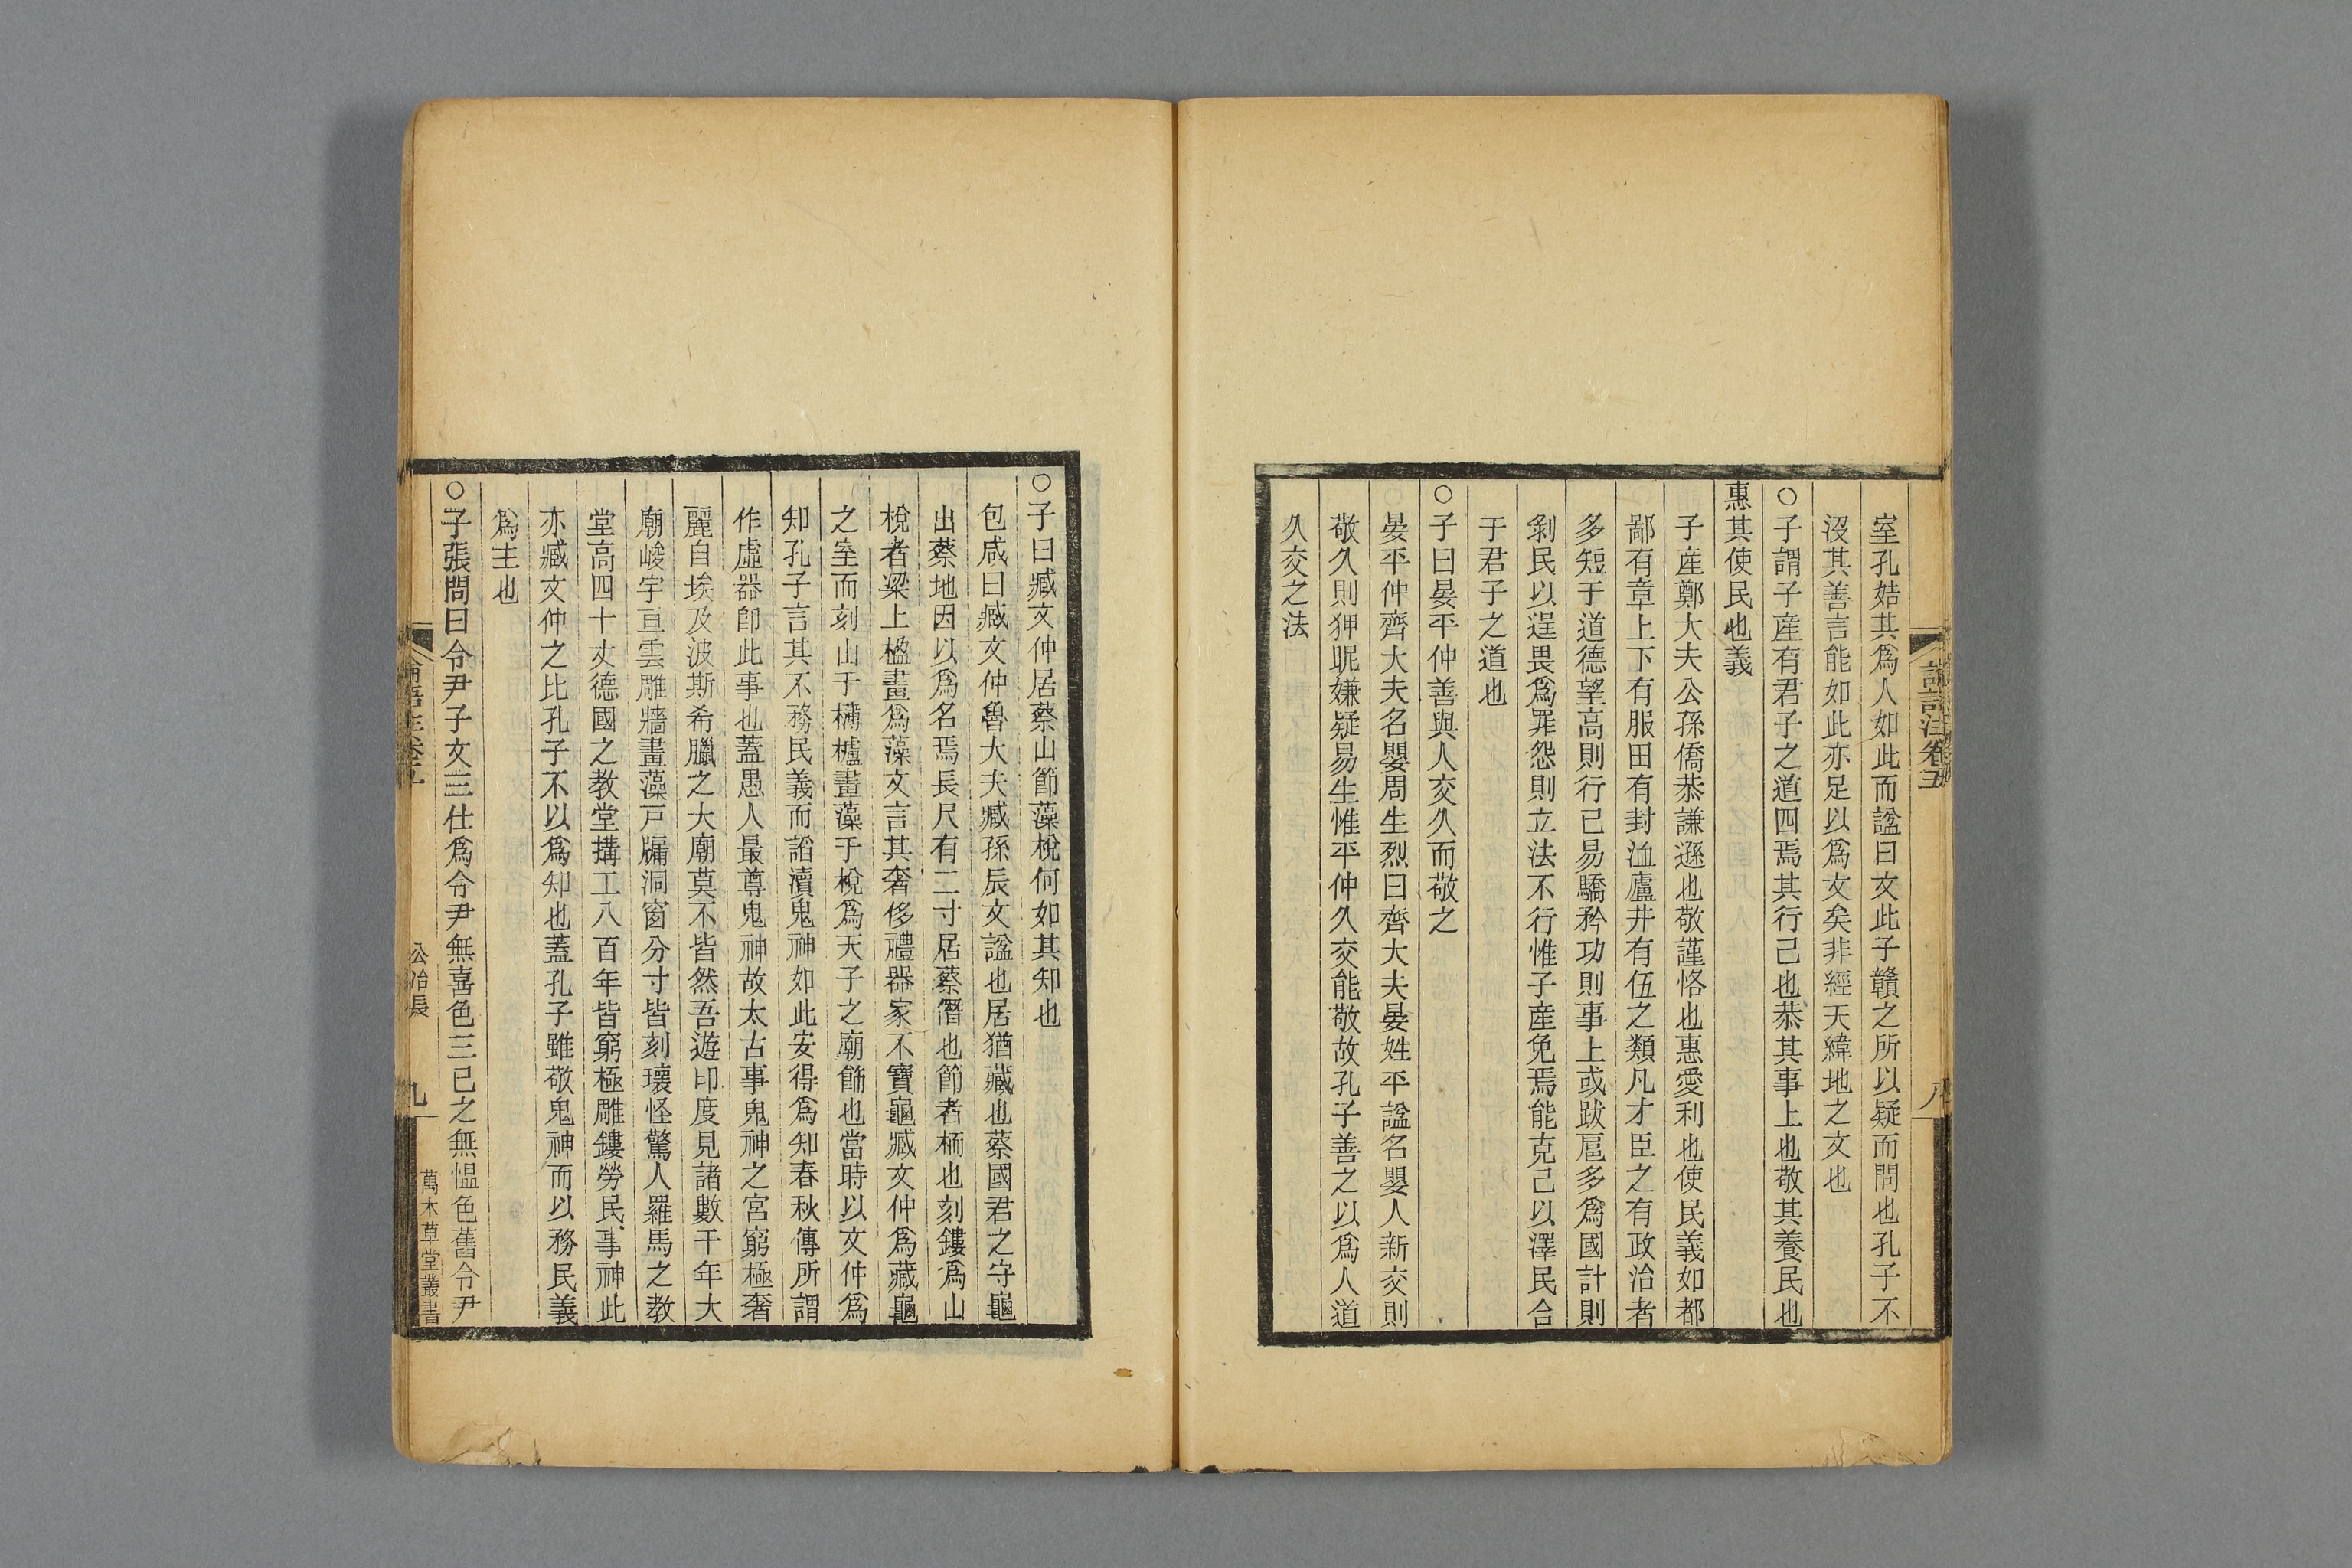 室孔姞其爲人如此而諡曰文此子贛之所以疑而問也孔子不
沒其善言能如此亦足以爲文矣非經天緯地之文也
○子謂子産有君子之道四焉其行己也恭其事上也敬其養民也
惠其使民也義
子産鄭大夫公孫僑恭謙遜也敬謹恪也惠愛利也使民義如都
鄙有章上下有服田有封洫廬井有伍之類凡才臣之有政治者
多短于道德望高則行己易驕矜功則事上或跋扈多爲國計則
剝民以逞畏爲罪怨則立法不行惟子産免焉能克己以澤民合
于君子之道也
○子曰晏平仲善與人交久而敬之
晏平仲齊大夫名嬰周生烈曰齊大夫晏姓平諡名嬰人新交則
敬久則狎昵嫌疑易生惟平仲久交能敬故孔子善之以爲人道
久交之法
論語注卷五
八
○子曰臧文仲居蔡山節藻梲何如其知也
包咸曰臧文仲魯大夫臧孫辰文諡也居猶藏也蔡國君之守龜
出蔡地因以爲名焉長尺有二寸居蔡僭也節者栭也刻鏤爲山
梲者梁上楹畫爲藻文言其奢侈禮器家不寶龜臧文仲爲藏龜
之室而刻山于欂櫨畫藻于梲爲天子之廟飾也當時以文仲爲
知孔子言其不務民義而諂瀆鬼神如此安得爲知春秋傳所謂
作虛器卽此事也蓋愚人最尊鬼神故太古事鬼神之宮窮極奢
麗自埃及波斯希臘之大廟莫不皆然吾遊印度見諸數千年大
廟峻宇亘雲雕牆畫藻戸牖洞窗分寸皆刻瓌怪驚人羅馬之教
堂高四十丈德國之教堂搆工八百年皆窮極雕鏤勞民事神此
亦臧文仲之比孔子不以爲知也蓋孔子雖敬鬼神而以務民義
爲主也
○子張問曰令尹子文三仕爲令尹無喜色三已之無慍色舊令尹
論語注卷五
公冶長
九
萬木草堂叢書